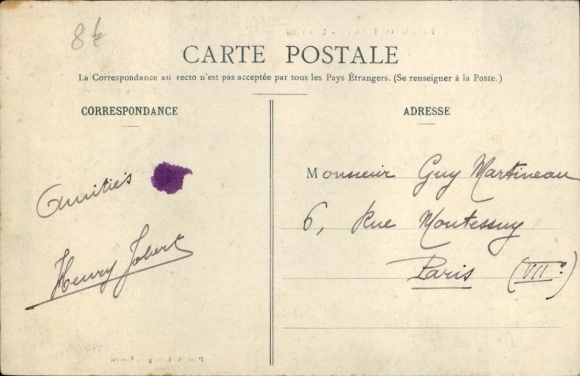 8€
CARTE POSTALE
La Correspondance au recto n'est pas acceptée par tous les Pays Étrangers. (Se renseigner à la Poste.)
CORRESPONDANCE
Amitiés
Henry Jobert
ADRESSE
Monsieur Guy Martineau
6, Rue Montessuy
Paris (VIIe)